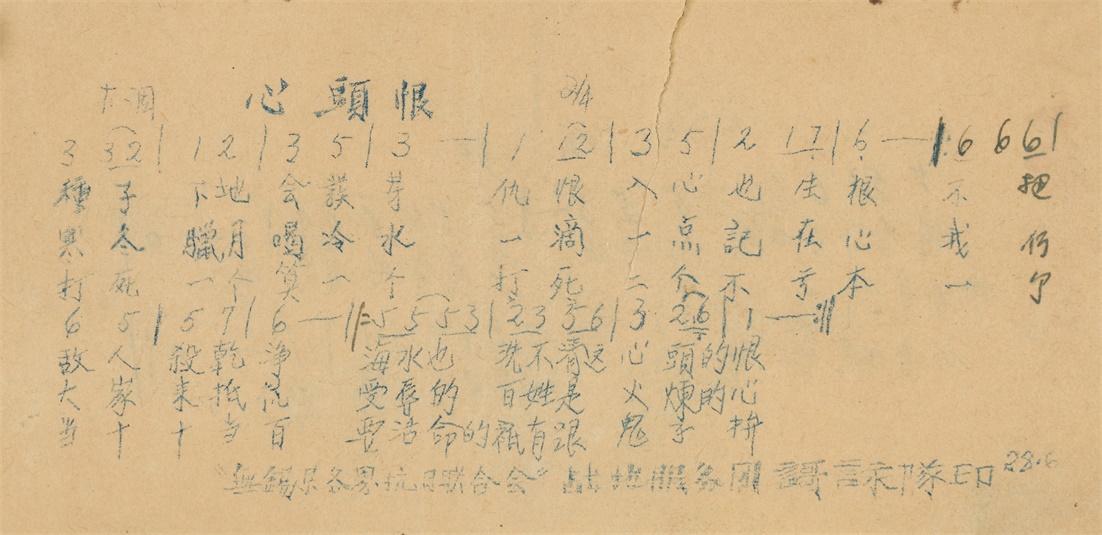 心頭恨 2/4
3 32 | 1 2 | 3 5 | 3 — | 1 12 | 3 5 | 2 17 | 6 — |: 6 6 6 |
種子下地会謨芽 仇恨入心也生根 不把
寒冬臘月喝冷水 一滴一点記在心 我
打死一个算一个 打死二个不亏本 一个
6 5 | 5 7 | 6 — | 5 5 5 3 | 2 3 5 6 | 3 2 6 | 1 — :|
敌人殺乾净 海水也洗不清心頭的恨
大家来抵抗 受辱的百姓是心火煉的心
当十当百 要活命的祇有跟鬼子拚
“無錫县各界抗日联合会”战地服务团 歌詠隊印 28.6